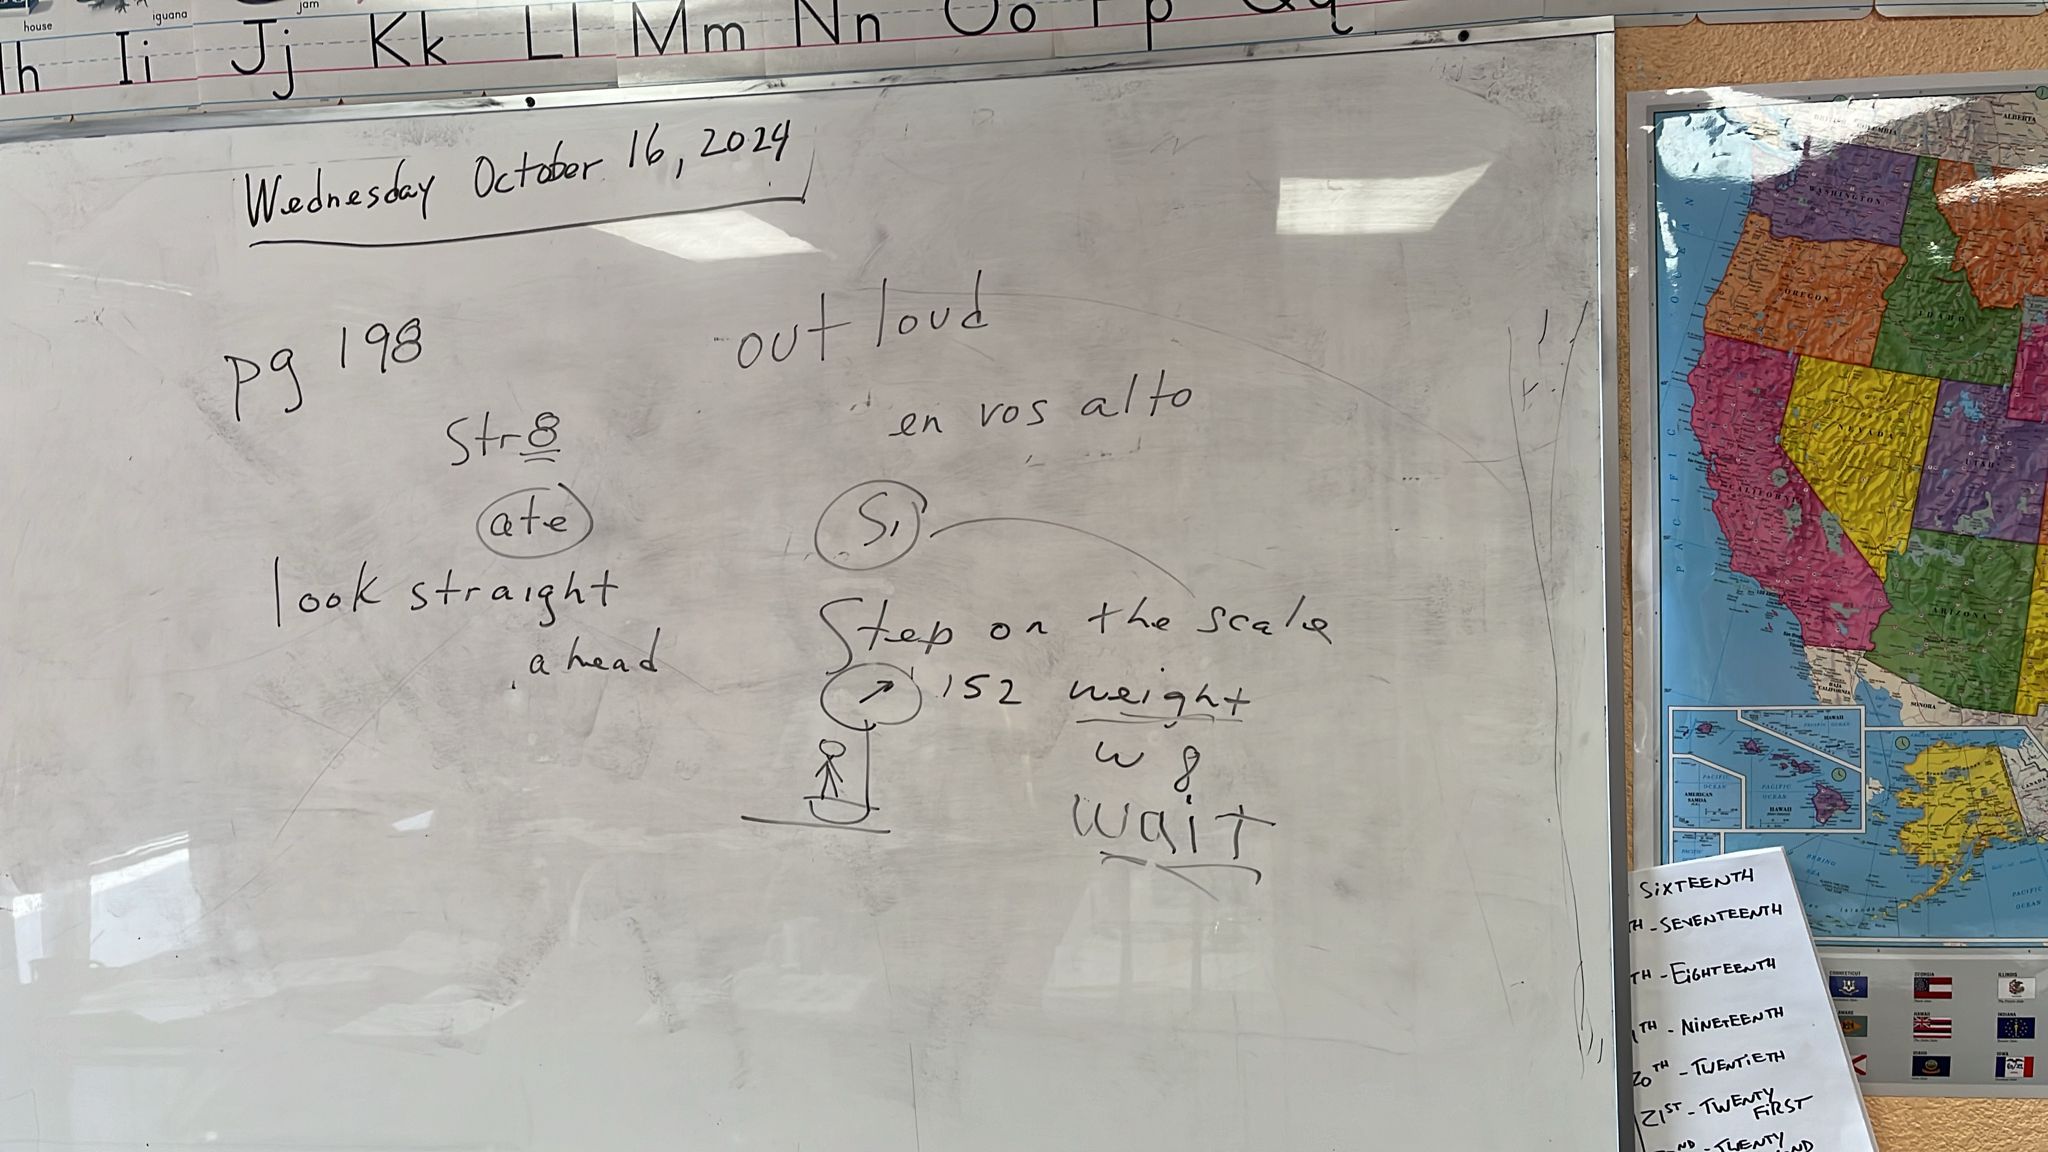 house
iguana
jam
Ii
Jj
Kk
Ll
Mm
Nn
Oo
Pp
Qq
Wednesday October 16, 2024
pg 198
out loud
en vos alto
str8
ate
Si
look straight
ahead
Step on the scale
152 weight
w 8
wait
BRITISH COLUMBIA
ALBERTA
WASHINGTON
OREGON
IDAHO
NEVADA
UTAH
CALIFORNIA
ARIZONA
PACIFIC OCEAN
BAJA CALIFORNIA
SONORA
HAWAII
PACIFIC OCEAN
PACIFIC OCEAN
AMERICAN SAMOA
HAWAII
BERING SEA
PACIFIC OCEAN
SIXTEENTH
TH - SEVENTEENTH
TH - EIGHTEENTH
TH - NINETEENTH
20TH - TWENTIETH
21ST - TWENTY FIRST
ND - TWENTY
CONNECTICUT
GEORGIA
ILLINOIS
HAWAII
INDIANA
IDAHO
IOWA